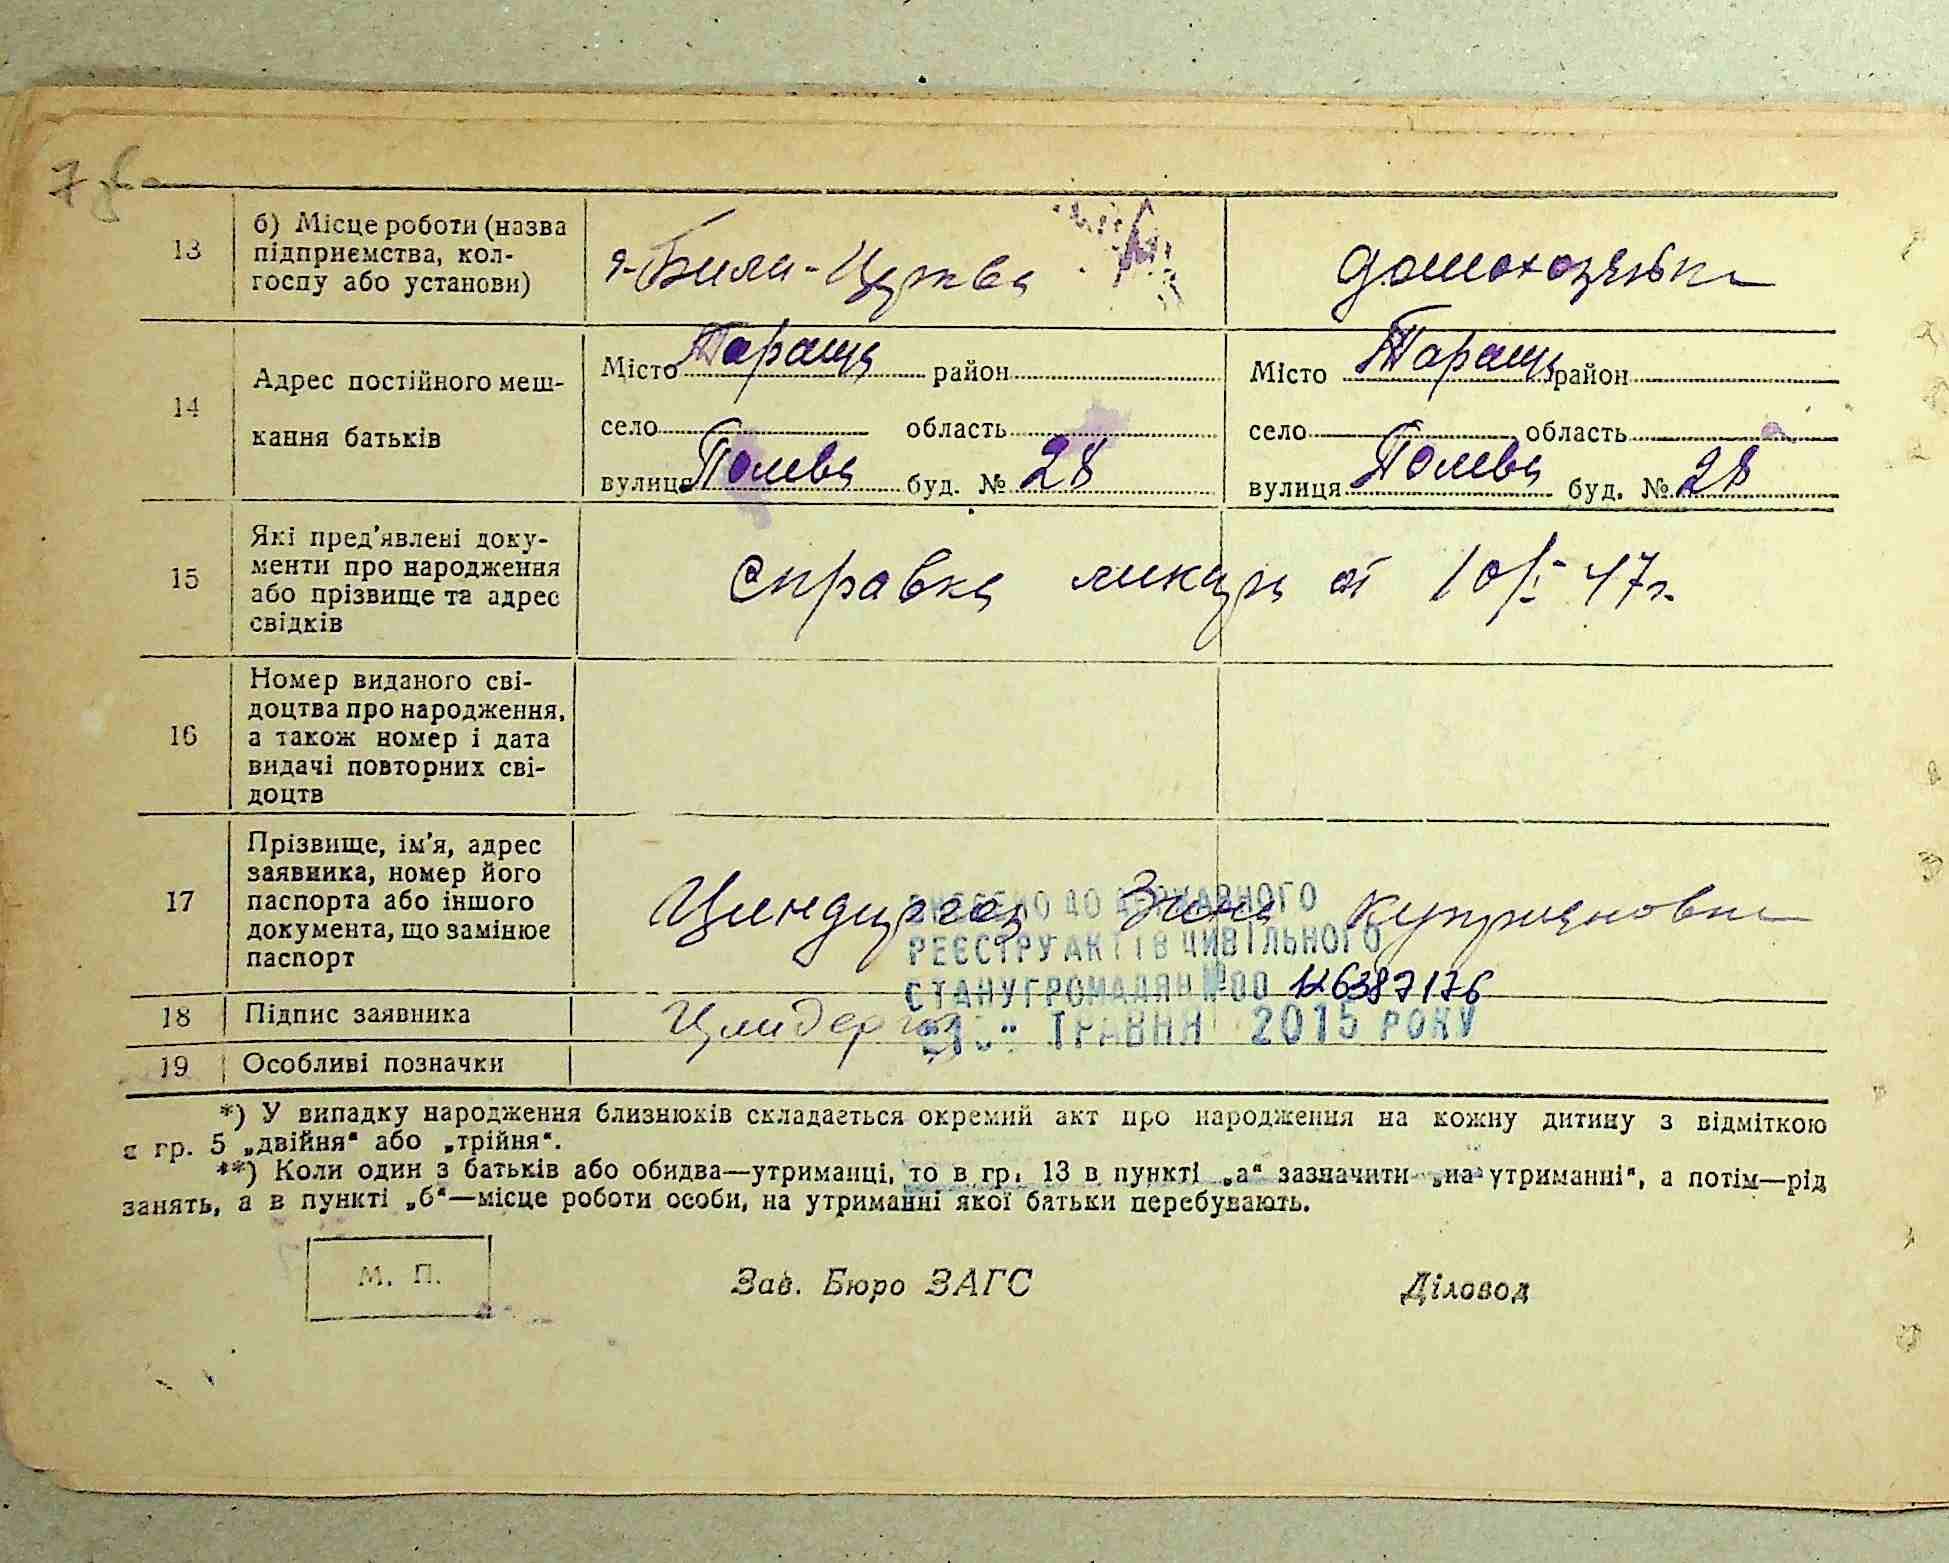 13 б) Місце роботи (назва
підприємства, кол-
госпу або установи)
Била-Церква
домохозяйка
14 Адрес постійного меш-
кання батьків
Місто Тараща район
село область
вулиця Полева буд. № 28
Місто Тараща район
село область
вулиця Полева буд. № 28
15 Які пред'явлені доку-
менти про народження
або прізвище та адрес
свідків
справка ликаря от 10/I-47г.
16 Номер виданого сві-
доцтва про народження,
а також номер і дата
видачі повторних сві-
доцтв
17 Прізвище, ім'я, адрес
заявника, номер його
паспорта або іншого
документа, що замінює
паспорт
Зина Куприяновна
ВНЕСЕНО ДО ДЕРЖАВНОГО
РЕЄСТРУ АКТІВ ЦИВІЛЬНОГО
СТАНУ ГРОМАДЯН №00 126387176
ТРАВНЯ 2015 РОКУ
18 Підпис заявника
19 Особливі позначки
*) У випадку народження близнюків складається окремий акт про народження на кожну дитину з відміткою
в гр. 5 „двійня“ або „трійня“.
**) Коли один з батьків або обидва—утриманці, то в гр. 13 в пункті „а“ зазначити „на утриманні“, а потім—рід
занять, а в пункті „б“—місце роботи особи, на утриманні якої батьки перебувають.
М. П.
Зав. Бюро ЗАГС
Діловод